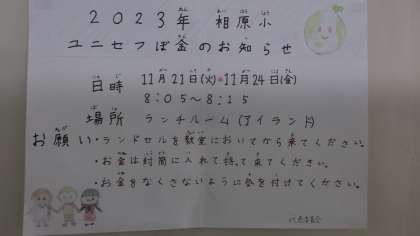 2023年 相原小
ユニセフぼ金のお知らせ
日時 11月21日(火)・11月24日(金)
8:05～8:15
場所 ランチルーム(アイランド)
お願い・ランドセルを教室においてから来てください。
・お金は封筒に入れて持って来てください。
・お金をなくさないように気を付けてください。
代表委員会